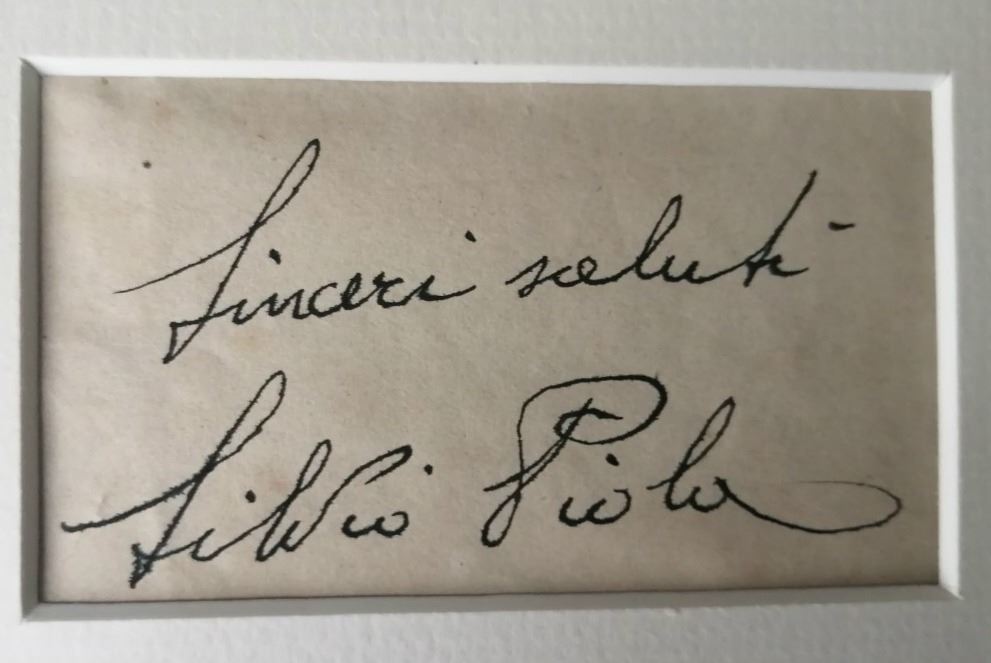 Sinceri saluti
Silvio Piola